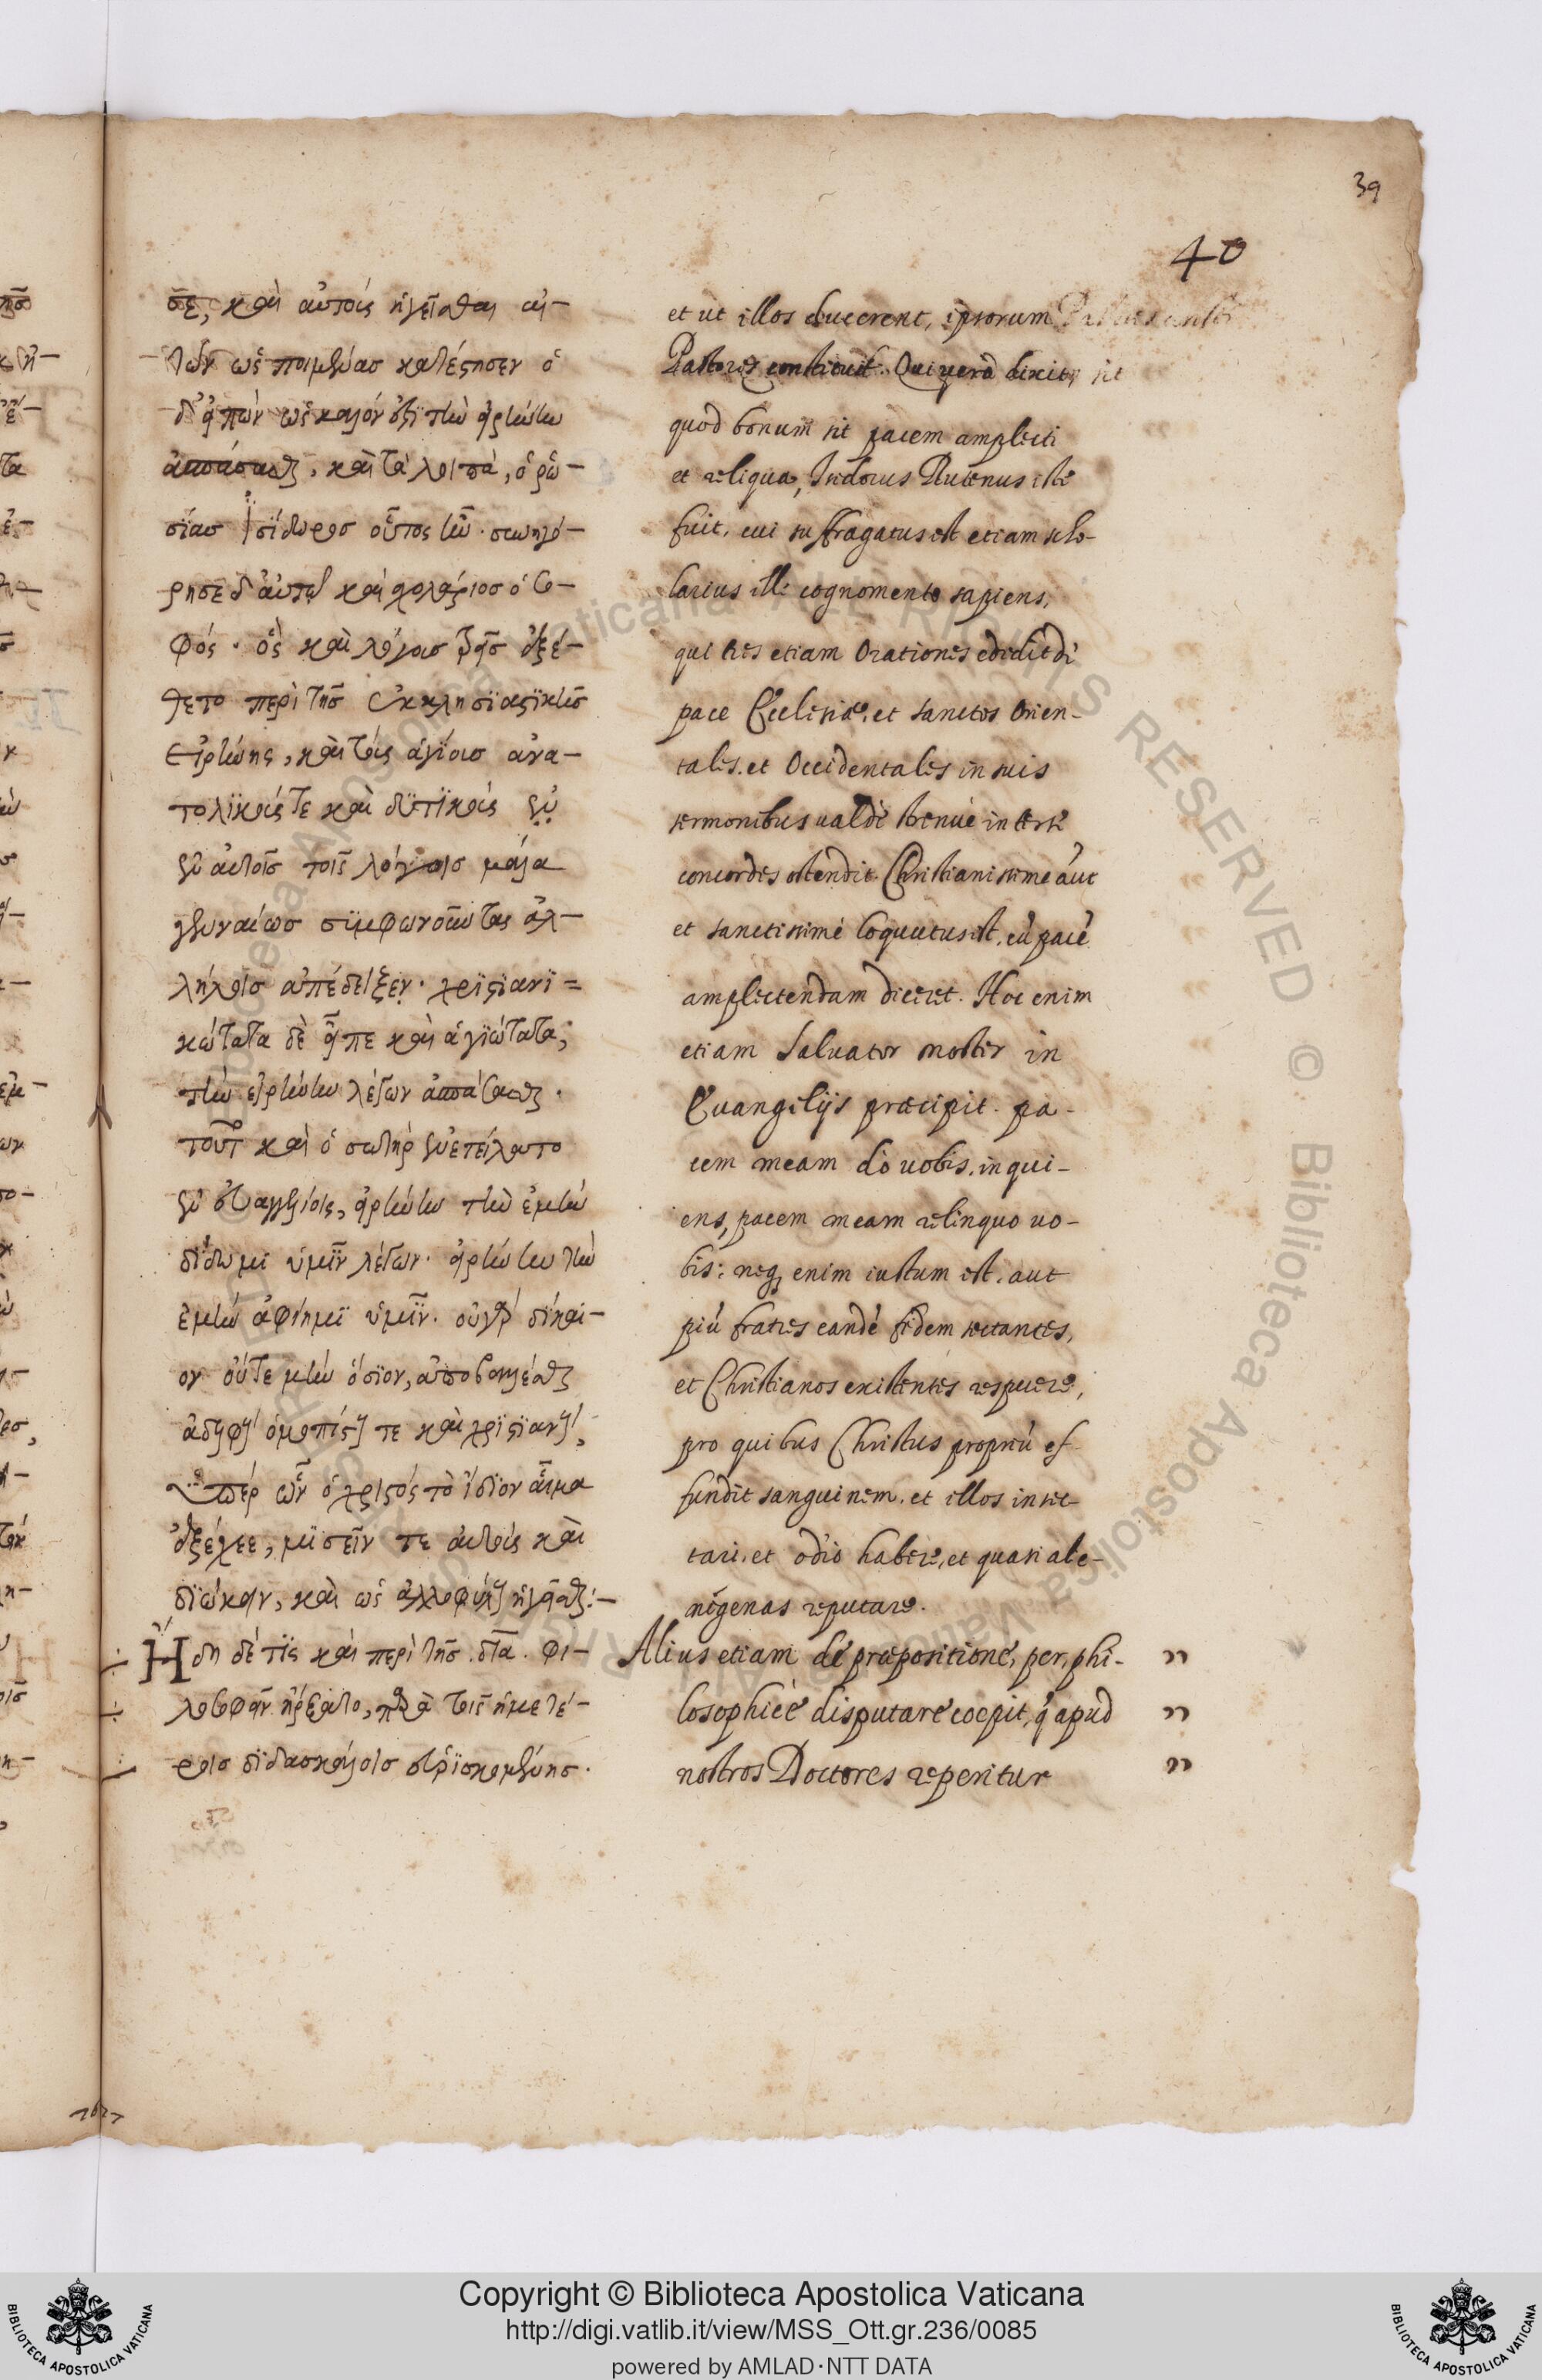 39
40
σε, καὶ αὐτοὺς ἡγεῖσθαι αὐ-
τῶν ὡς ποιμένας κατέστησεν ὁ
δ' εἰπὼν ὡς καλόν ἐστι τὴν εἰρήνην
ἀσπάσασθαι, καὶ τὰ λοιπὰ, ὁ ῥω-
σίας ἰσίδωρος οὗτος ἦν. συνηγό-
ρησε δ' αὐτῷ καὶ σχολάριος ὁ σο-
φός. ὃς καὶ λόγους τρεῖς ἐξέ-
θετο περὶ τῆς ἐκκλησιαστικῆς
εἰρήνης, καὶ τοὺς ἁγίους ἀνα-
τολικούς τε καὶ δυτικοὺς ἐν
ἐν αὐτοῖς τοῖς λόγοις μάλα
γενναίως συμφωνοῦντας ἀλ-
λήλοις ἀπέδειξεν. χριστιανι=
κώτατα δὲ εἶπε καὶ ἁγιώτατα,
τὴν εἰρήνην λέγων ἀσπάσασθαι.
τοῦτο καὶ ὁ σωτὴρ ἐνετείλατο
ἐν εὐαγγελίοις, εἰρήνην τὴν ἐμὴν
δίδωμι ὑμῖν λέγων. εἰρήνην τὴν
ἐμὴν ἀφίημι ὑμῖν. οὐ γὰρ δίκαι-
ον οὔτε μὴν ὅσιον, ἀποβαλέσθαι
ἀδελφοὺς ὁμοπίστους τε καὶ χριστιανούς,
ὑπὲρ ὧν ὁ χριστὸς τὸ ἴδιον αἷμα
ἐξέχεε, μισεῖν τε αὐτοὺς καὶ
διώκειν, καὶ ὡς ἀλλοφύλους ἡγεῖσθαι:-
Ἤδη δέ τις καὶ περὶ τῆς διὰ. φι-
λοσοφεῖν ἤρξατο, παρὰ τοῖς ἡμετέ-
ροις διδασκάλοις εὑρισκομένης.
et ut illos ducerent, ipsorum
Pastores constituit. Qui vero dixit, sit
quod bonum sit pacem amplecti
et reliqua, Isidorus Rutenus iste
fuit, cui suffragatus est etiam scho-
larius ille cognomento sapiens,
qui tres etiam Orationes edidit de
pace Ecclesiae, et sanctos Orien-
tales. et Occidentales in suis
sermonibus valdè strenuè inter se
concordes ostendit. Christianissimè aut
et sanctissimè loquutus est, cù pacé
amplectendam diceret. Hoc enim
etiam Salvator noster in
Evangelijs praecipit. pa-
cem meam do vobis. inqui-
ens, pacem meam relinquo vo-
bis: neq, enim iustum est. aut
più fratres eandè fidem sectantes,
et Christianos existentes respuere,
pro quibus Christus propriù ef-
fundit sanguinem. et illos insec-
tari. et odio habere, et quasi ale-
nigenas reputare.
Alius etiam de praepositione, per, phi-
losophicè disputare coepit, q̀ apud
nostros Doctores reperitur
Copyright © Biblioteca Apostolica Vaticana
http://digi.vatlib.it/view/MSS_Ott.gr.236/0085
powered by AMLAD·NTT DATA